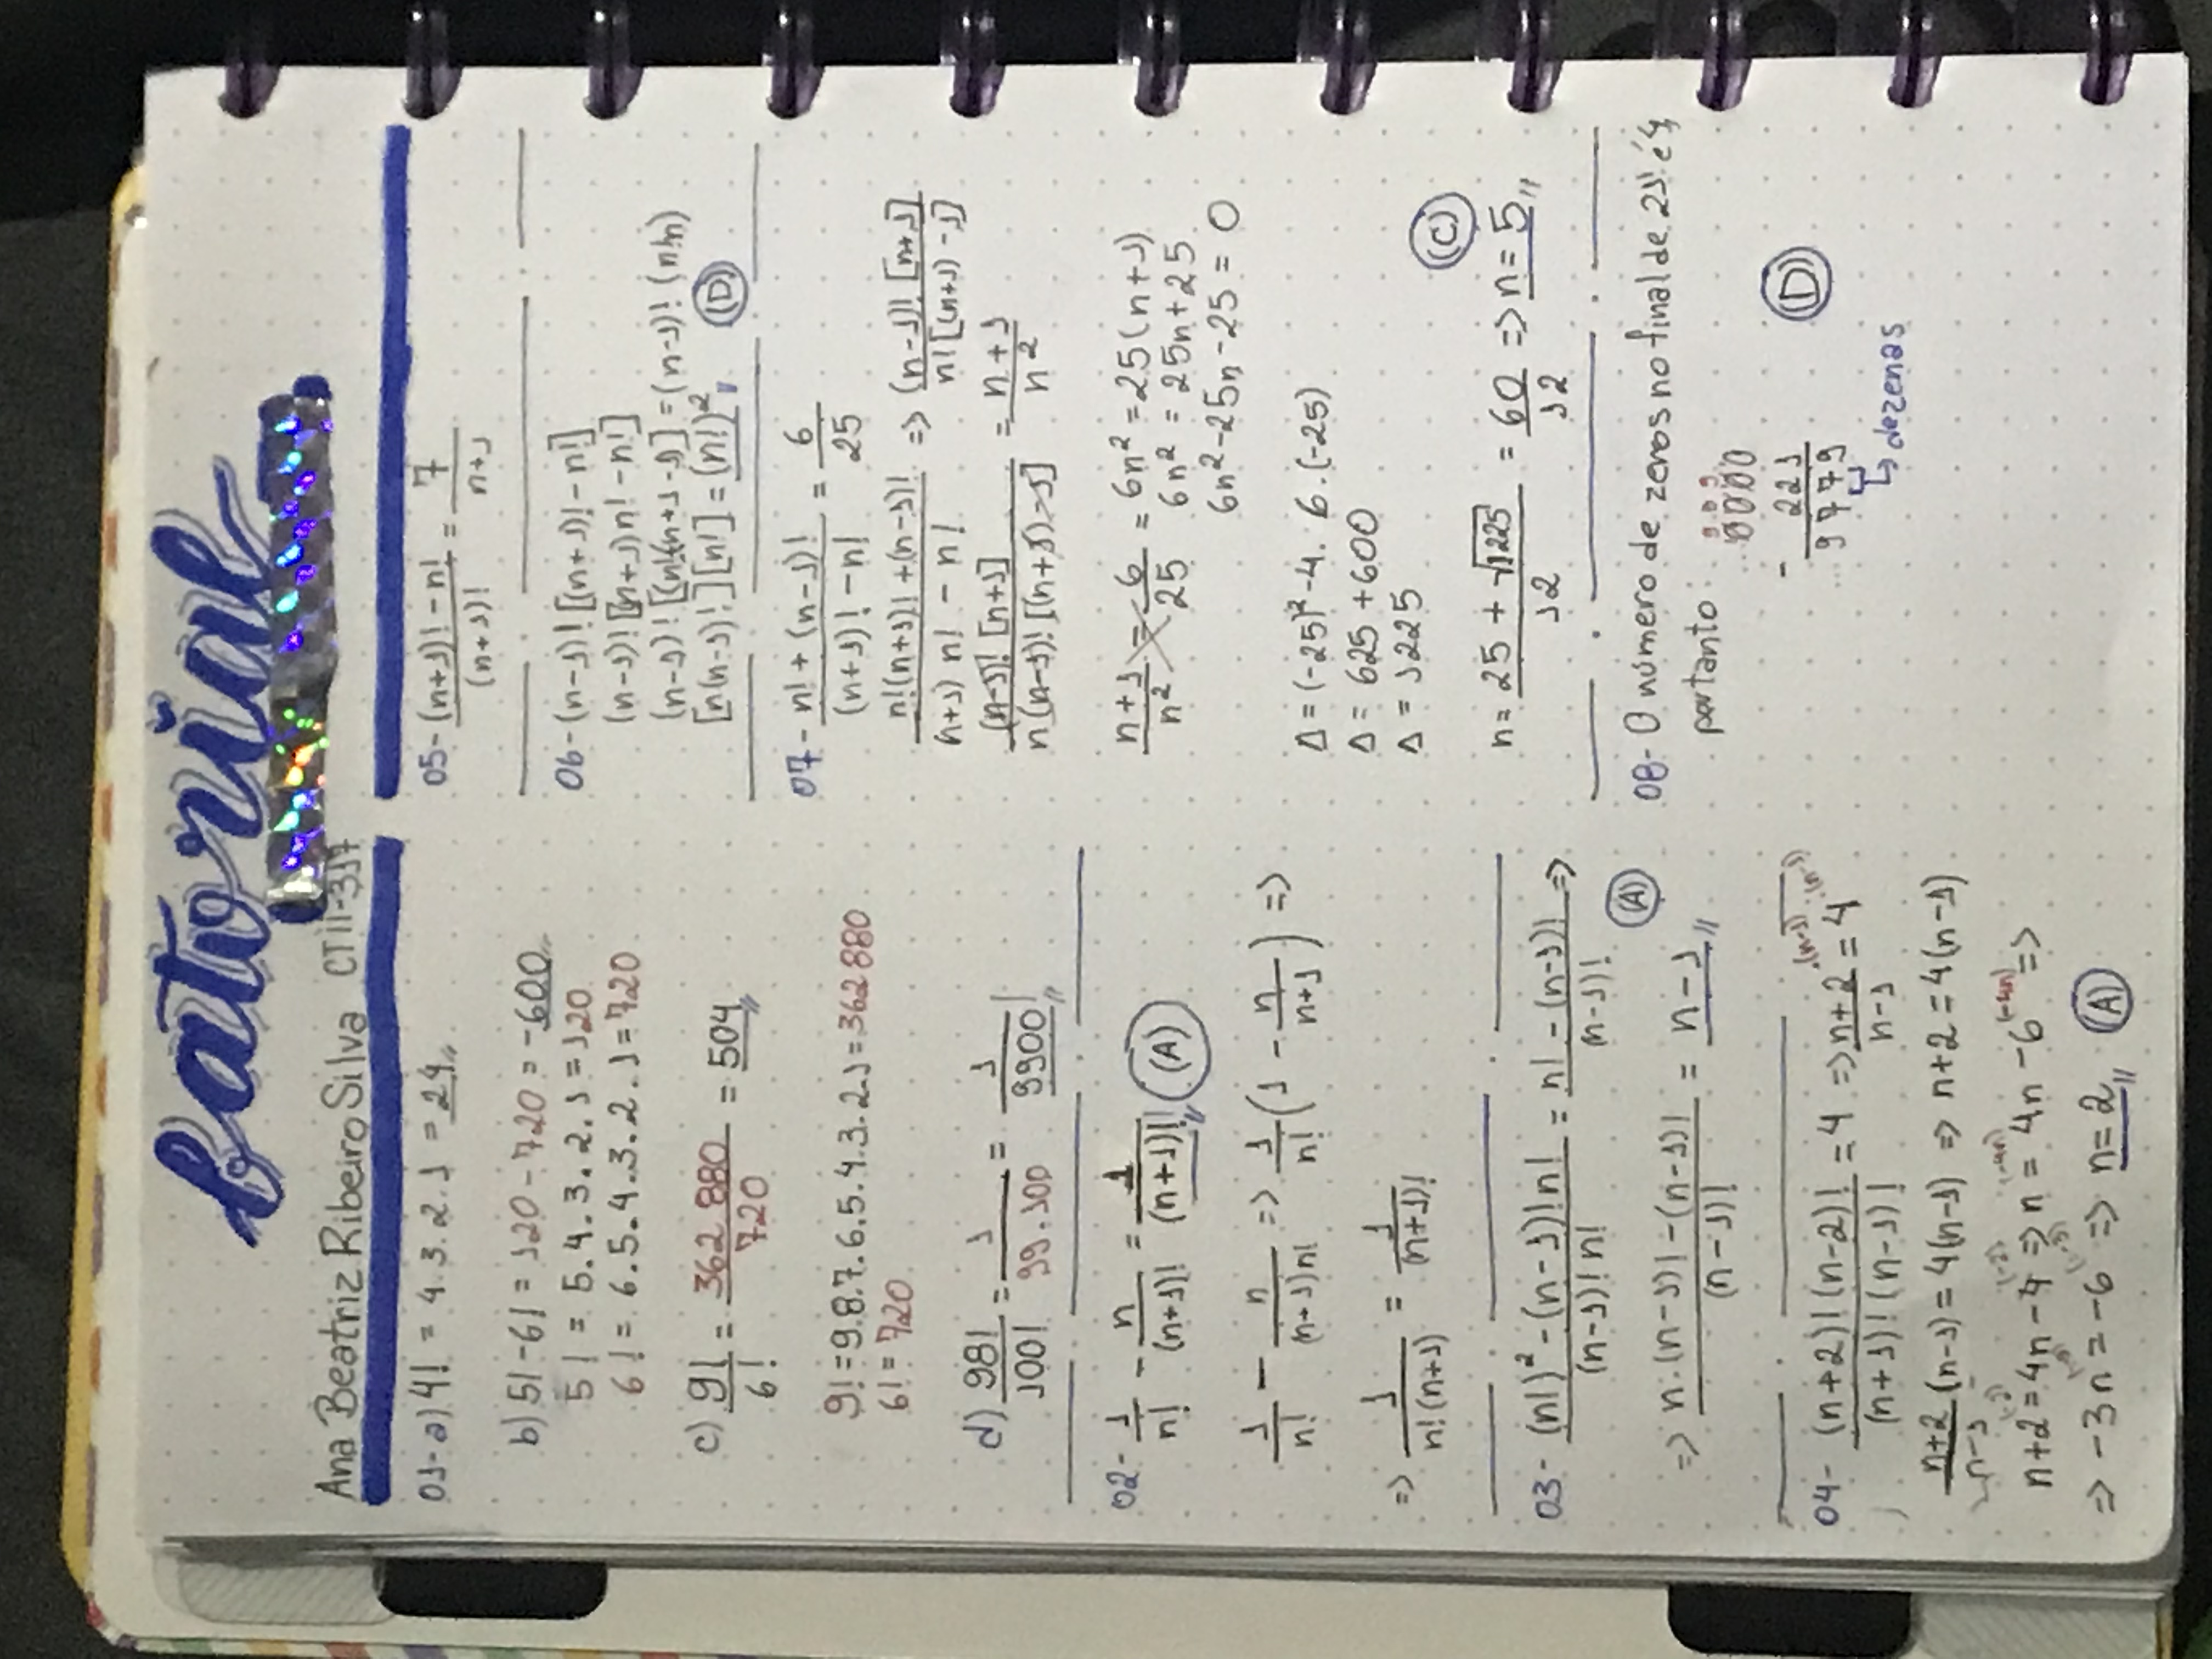 fatorial
Ana Beatriz Ribeiro Silva CTII-317
01- a) 4! = 4.3.2.1 = 24
b) 5! - 6! = 120 - 720 = -600
5! = 5.4.3.2.1 = 120
6! = 6.5.4.3.2.1 = 720
c) 9!/6! = 362 880/720 = 504
9! = 9.8.7.6.5.4.3.2.1 = 362 880
6! = 720
d) 98!/100! = 1/99.100 = 1/9900
02- 1/n! - n/(n+1)! = 1/(n+1)! (A)
1/n! - n/(n+1)n! => 1/n! (1 - n/n+1) =>
=> 1/n!(n+1) = 1/(n+1)!
03- (n!)² - (n-1)!n!/(n-1)!n! = n! - (n-1)!/(n-1)! =>
(A)
=> n.(n-1)! - (n-1)!/(n-1)! = n-1
04- (n+2)!(n-2)!/(n+1)!(n-1)! = 4 => n+2/n-1 .(n-1) = 4 .(n-1)
n+2/n-1 (n-1) = 4(n-1) => n+2 = 4(n-1)
n+2 (-2) = 4n-4 (-2) => n (-4n) = 4n-6 (-4n) =>
=> -3n = -6 => n=2 (A)
05- (n+1)! - n!/(n+1)! = 7/n+1
06- (n-1)! [(n+1)! - n!]
(n-1)! [(n+1)n! - n!]
(n-1)! [(n!(n+1-1)] = (n-1)! (n!n)
[n(n-1)!][n!] = (n!)² (D)
07- n! + (n-1)!/(n+1)! - n! = 6/25
n!(n+1)! + (n-1)!/(n+1) n! - n! => (n-1)! [n+1]/n! [(n+1) - 1]
(n-1)! [n+1]/n(n-1)! [(n+1)-1] = n+1/n²
n+1/n² = 6/25 = 6n² = 25(n+1)
6n² = 25n+25
6n² - 25n - 25 = 0
Δ = (-25)² - 4. 6.(-25)
Δ = 625 + 600
Δ = 1225
(C)
n = 25 + √1225/12 = 60/12 => n = 5
08- O número de zeros no final de 21! é 4,
portanto:
...0000
- 221
...9779
dezenas
(D)